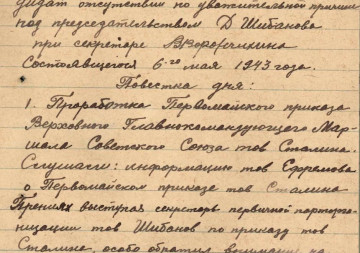 дидат отсутствии по уважительной причине
под председательством Д Шибанова
при секретаре
Состоявшегося 6го мая 1943 года.
Повестка дня:
1. Проработка Первомайского приказа
Верховного Главнокомандующего Мар-
шала Советского Союза тов Сталина.
Слушали: информацию тов Ефремова
о Первомайском приказе тов Сталина
Прениях выступал секретарь первичной парторга-
низации тов Шибанов по приказу тов
Сталина, особо обратил внимание на